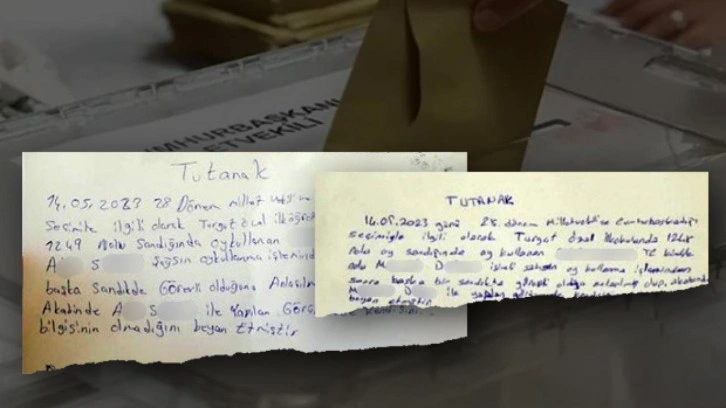 CUMHURBAŞKANI
LETVEKİLİ
Tutanak
14.05.2023 28 Dönem millet
Seçimite ilgili olarak Turgut Özal ilköğre
1249 Nolu Sandığında oykullanan
A S şağsın oykullanma işlemind
başka Sandıkde Görevli olduğunu Anlaşılm
Akabinde A S ile Yapılan Görü
bilgisinin olmadığını beyan Etmiştir
TUTANAK
14.05.2023 günü 28. dönem Milletvekili ve Cumhurbaşkanlığı
seçimiyle ilgili olarak Turgut Özal ilkokulunda
Nolu oy sandığında oy kullanan TC kimlik
nolu M D isimli şahsın oy kullanma işleminden
sonra başka bir sandıkta görevli olduğu anlaşılmış olup, akabinde
M D ile yapılan
beyan etmiştir.